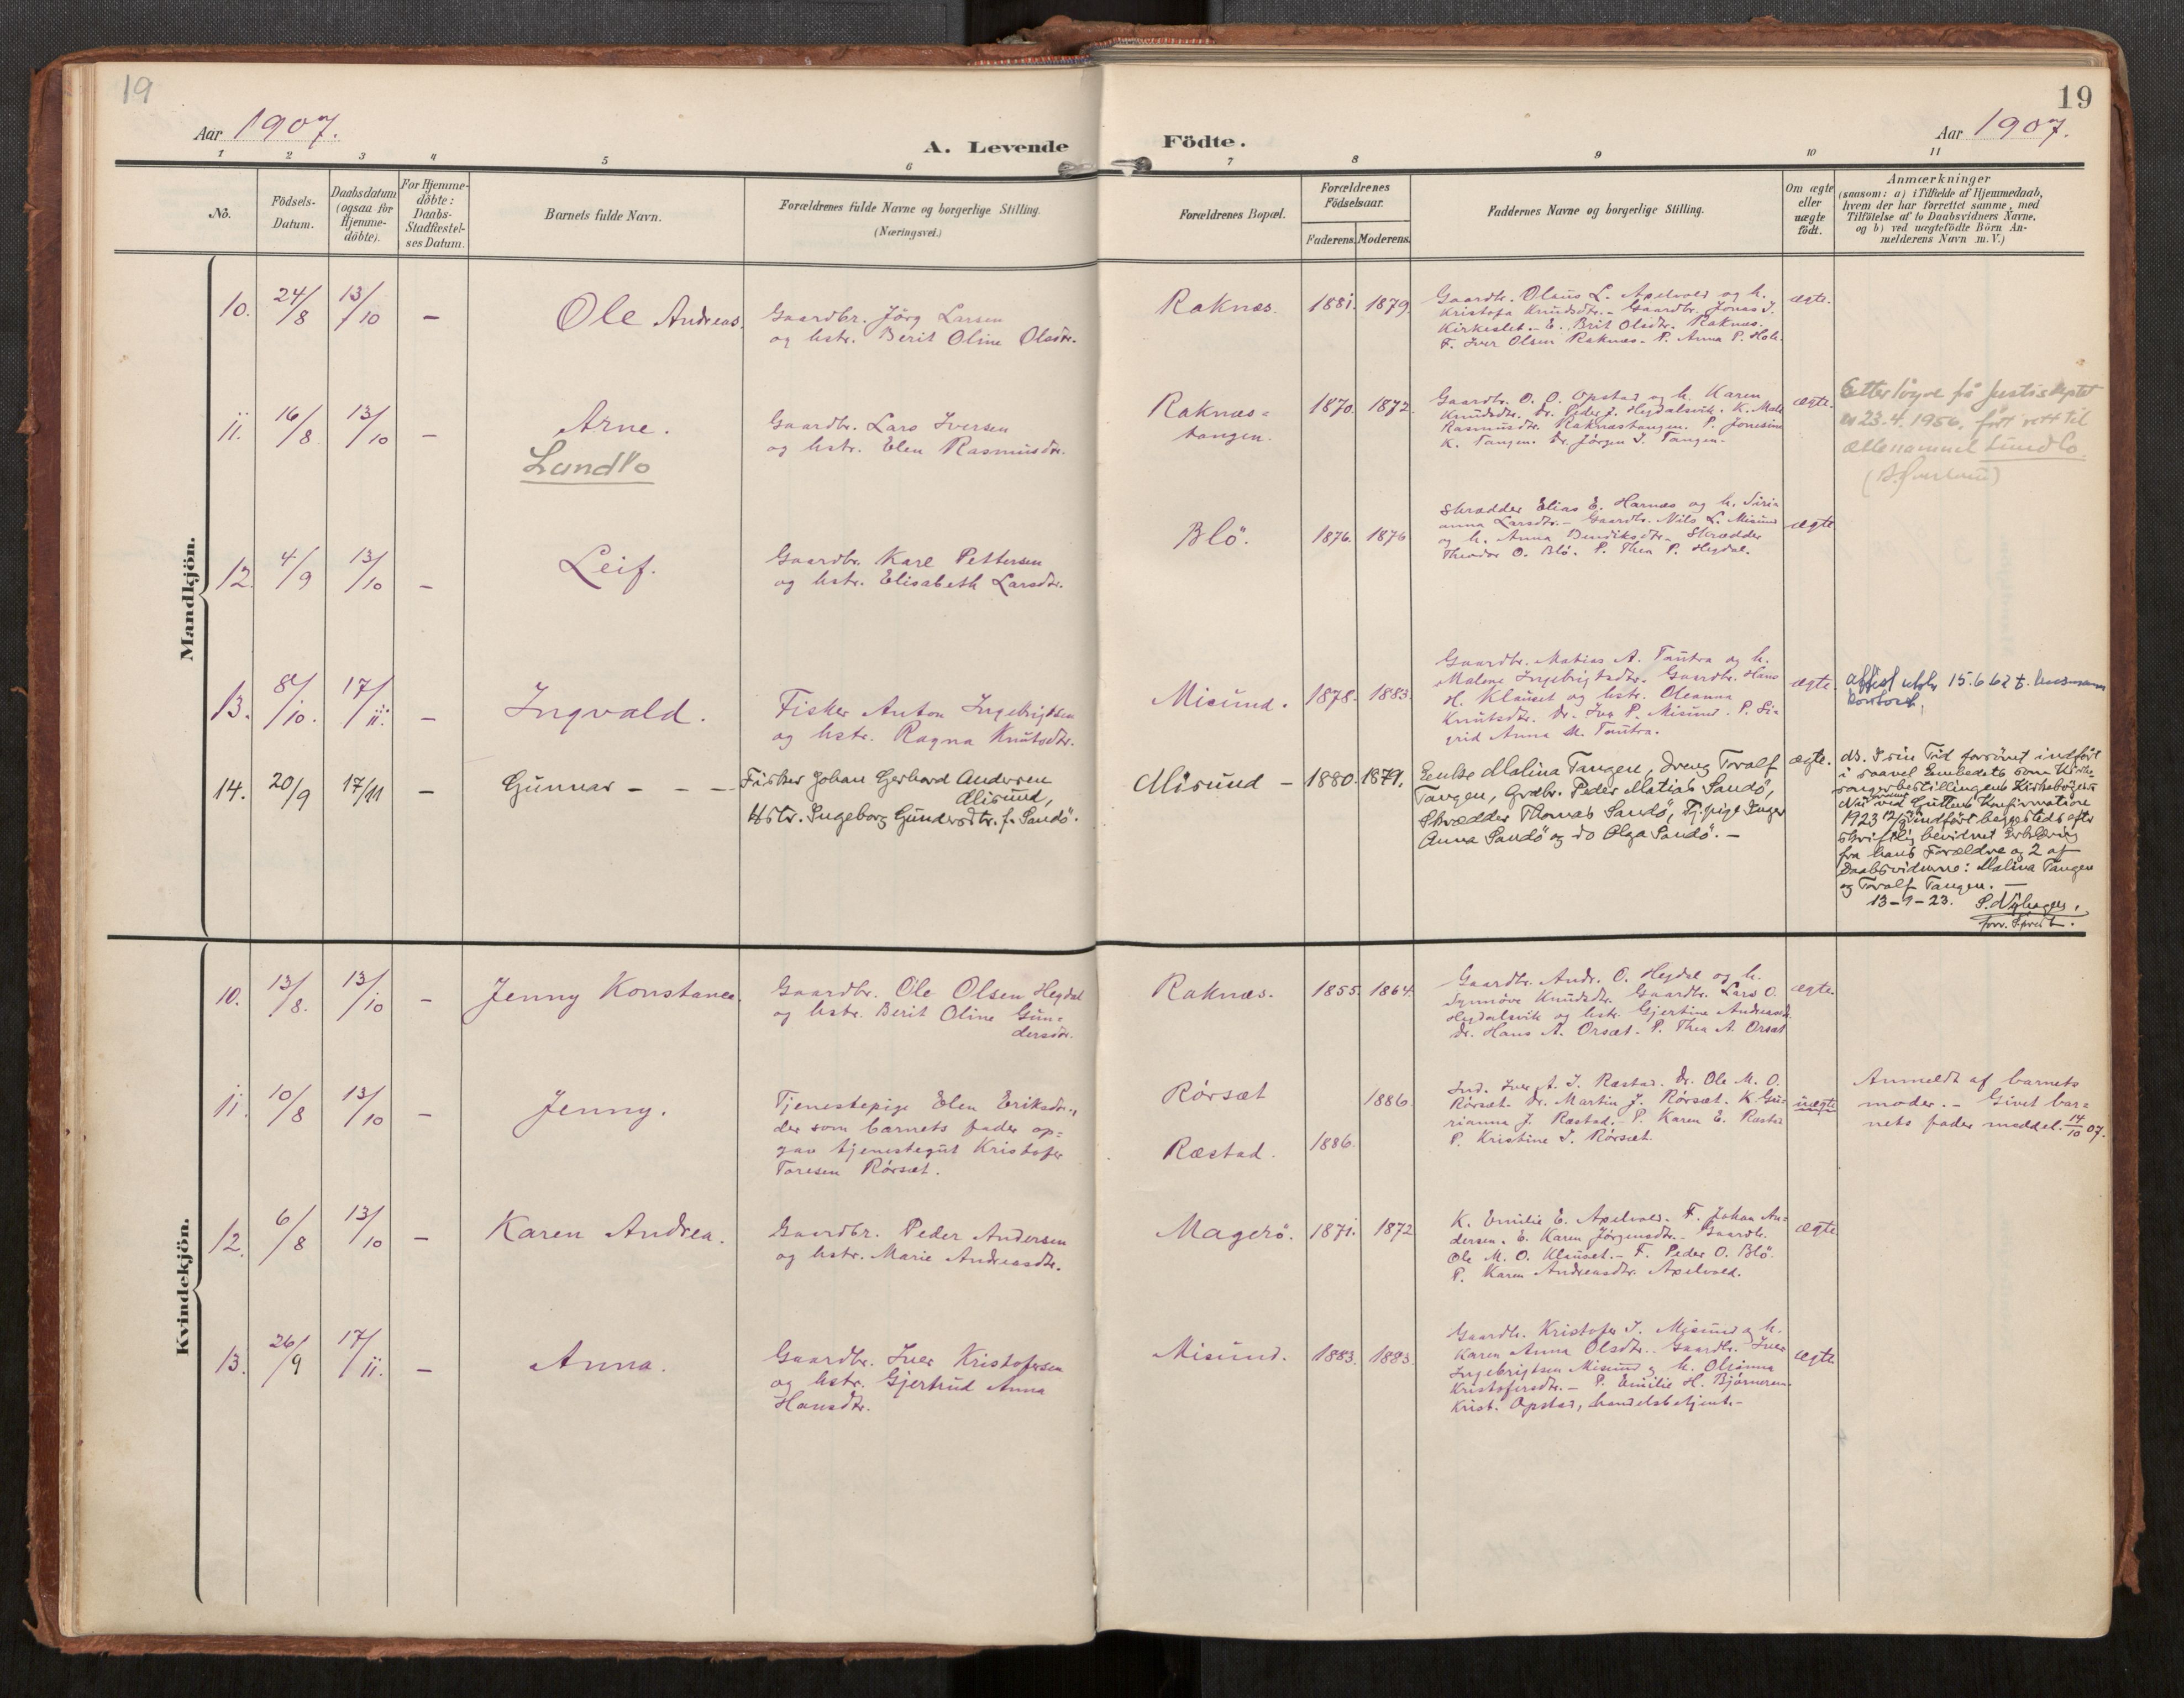 19
19
Aar 1907.
A. Levende
Födte.
Aar 1907.
1 2 3 4 5 6 7 8 9 10 11
No.
Födsels-
Datum.
Daabsdatum
(ogsaa for
Hjemme-
döbte).
For Hjemme-
döbte:
Daabs-
Stadfæstel-
ses Datum.
Barnets fulde Navn.
Forældrenes fulde Navne og borgerlige Stilling.
(Næringsvei.)
Forældrenes Bopæl.
Forældrenes
Födselsaar.
Faderens. Moderens.
Faddernes Navne og borgerlige Stilling.
Om ægte
eller
uægte
födt.
Anmærkninger
(saasom: a) i Tilfælde af Hjemmedaab,
hvem der har forrettet samme, med
Tilföielse af to Daabsvidners Navne,
og b) ved uægtefödte Börn An-
melderens Navn m. V.)
Mandkjön.
10. 24/8 13/10 – Ole Andreas.
Gaardbr. Jörg Larsen
og hstr. Berit Oline Olsdtr.
Raknæs. 1881. 1879.
Gaardbr. Olaus L. Apelvold og h.
Kristofa Knudsdtr. – Gaardbr. Jonas J.
Kirkeslet. – E. Brit Olsdtr. Raknæs.
F. Iver Olsen Raknæs. P. Anna P. Hole.
ægte.
11. 16/8 13/10 – Arne.
Lundlo
Gaardbr. Lars Iversen
og hstr. Elen Rasmusdtr.
Raknæs=
tangen.
1870. 1872.
Gaardbr. O. O. Opstad og h. Karen
Knudsdtr. Dr. Peder J. Hegdalsvik. K. Mali
Rasmusdtr. Raknæstangen. P. Jonesine
K. Tangen. Dr. Jörgen I. Tangen.
ægte.
Etter löyve få Justisdeptet
23.4.1956, fört rett til
ættenamnet Lundlo.
12. 4/9 13/10 – Leif.
Gaardbr. Karl Pettersen
og hstr. Elisabeth Larsdtr.
Blö. 1876. 1876
Skrædder Elias E. Harnæs og h. Siri=
anna Larsdtr. – Gaardbr. Nils L. Misund
og h. Anna Bendiksdtr. Skrædder
Theodor O. Blö. P. Thea P. Hegdal.
ægte
13. 8/10. 17/11. – Ingvald.
Fisker Anton Ingebrigtsen
og hstr. Ragna Knutsdtr.
Misund. 1878. 1883.
Gaardbr. Matias A. Tautra og h.
Malene Ingebrigtsdtr. Gaardbr. Hans
H. Klauset og hstr. Oleanna
Knutsdtr. Dr. Iver P. Misund. P. Si=
grid Anna M. Tautra.
ægte.
15.6.62 t.
14. 20/9 17/11 – Gunnar – – –
Fisker Johan Gerhard Andersen
Misund,
Hstr. Ingeborg Gundersdtr. f. Sandö.
Misund – 1880. 1879.
Enke Malina Tangen, Dreng Toralf
Tangen, Grdbr. Peder Matias Sandö,
Skrædder Thomas Sandö, Tj.pige Inger
Anna Sandö og do Olga Sandö. –
ægte.
ds. I sin Tid forsömt indfört
i saavel Embedets som Kirke-
sangerbestillingens Kirkeböger.
Nu ved Guttens Konfirmation
1923 indfört begge steds efter
skriftlig bevidnet Erklæring
fra hans Forældre og 2 af
Daabsvidnerne: Malina Tangen
og Toralf Tangen. –
13-9-23.
Kvindekjön.
10. 13/8. 13/10 – Jenny Konstance.
Gaardbr. Ole Olsen Hegdal
og hstr. Berit Oline Gun=
dersdtr.
Raknæs. 1855. 1864.
Gaardbr. Andr. O. Hegdal og h.
Synnöve Knudsdtr. Gaardbr. Lars O.
Hegdalsvik og hstr. Gjertine Andreasdtr.
Dr. Hans A. Orsæt. P. Thea A. Orsæt
ægte.
11. 10/8 13/10 – Jenny.
Tjenestepige Elen Eriksdtr.,
der som barnets fader op=
gav tjenestegut Kristofer
Toresen Rörsæt.
Rörsæt 1886.
Ræstad. 1886.
Ind. Iver A. J. Ræstad. Dr. Ole M. O.
Rörsæt. Dr. Martin J. Rörsæt. K. Gu=
rianna J. Ræstad. P. Karen E. Ræstad
P. Kristine J. Rörsæt.
uægte
Anmeldt af barnets
moder. – Givet bar=
nets fader meddel. 14/10 07.
12. 6/8 13/10 – Karen Andrea.
Gaardbr. Peder Andersen
og hstr. Marie Andreasdtr.
Magerö. 1871. 1872
K. Emilie E. Apelvold. F. Johan An=
dersen. E. Karen Jörgensdtr. Gaardbr.
Ole M. O. Klauset. – F. Peder O. Blö.
P. Karen Andreasdtr. Apelvold.
ægte
13. 26/9 17/11. – Anna.
Gaardbr. Iver Kristofersen
og hstr. Gjertrud Anna
Hansdtr.
Misund. 1883. 1883.
Gaardbr. Kristofer I. Misund og h.
Karen Anna Olsdtr. Gaardbr. Iver
Ingebrigtsen Misund og h. Olianna
Kristofersdtr. – P. Emilie H. Björnerem.
Krist. Opstad, handelsbetjent. –
ægte